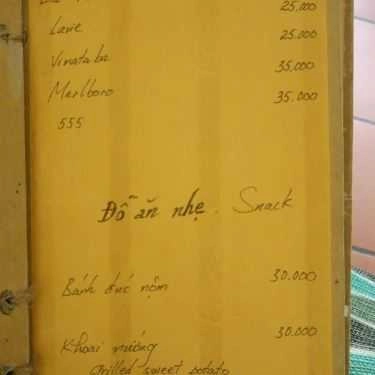 25.000
Lavie 25.000
Vinataba 35.000
Marlboro 35.000
555
Đồ ăn nhẹ. Snack
Bánh đúc nộm 30.000
Khoai nướng 30.000
Grilled sweet potato